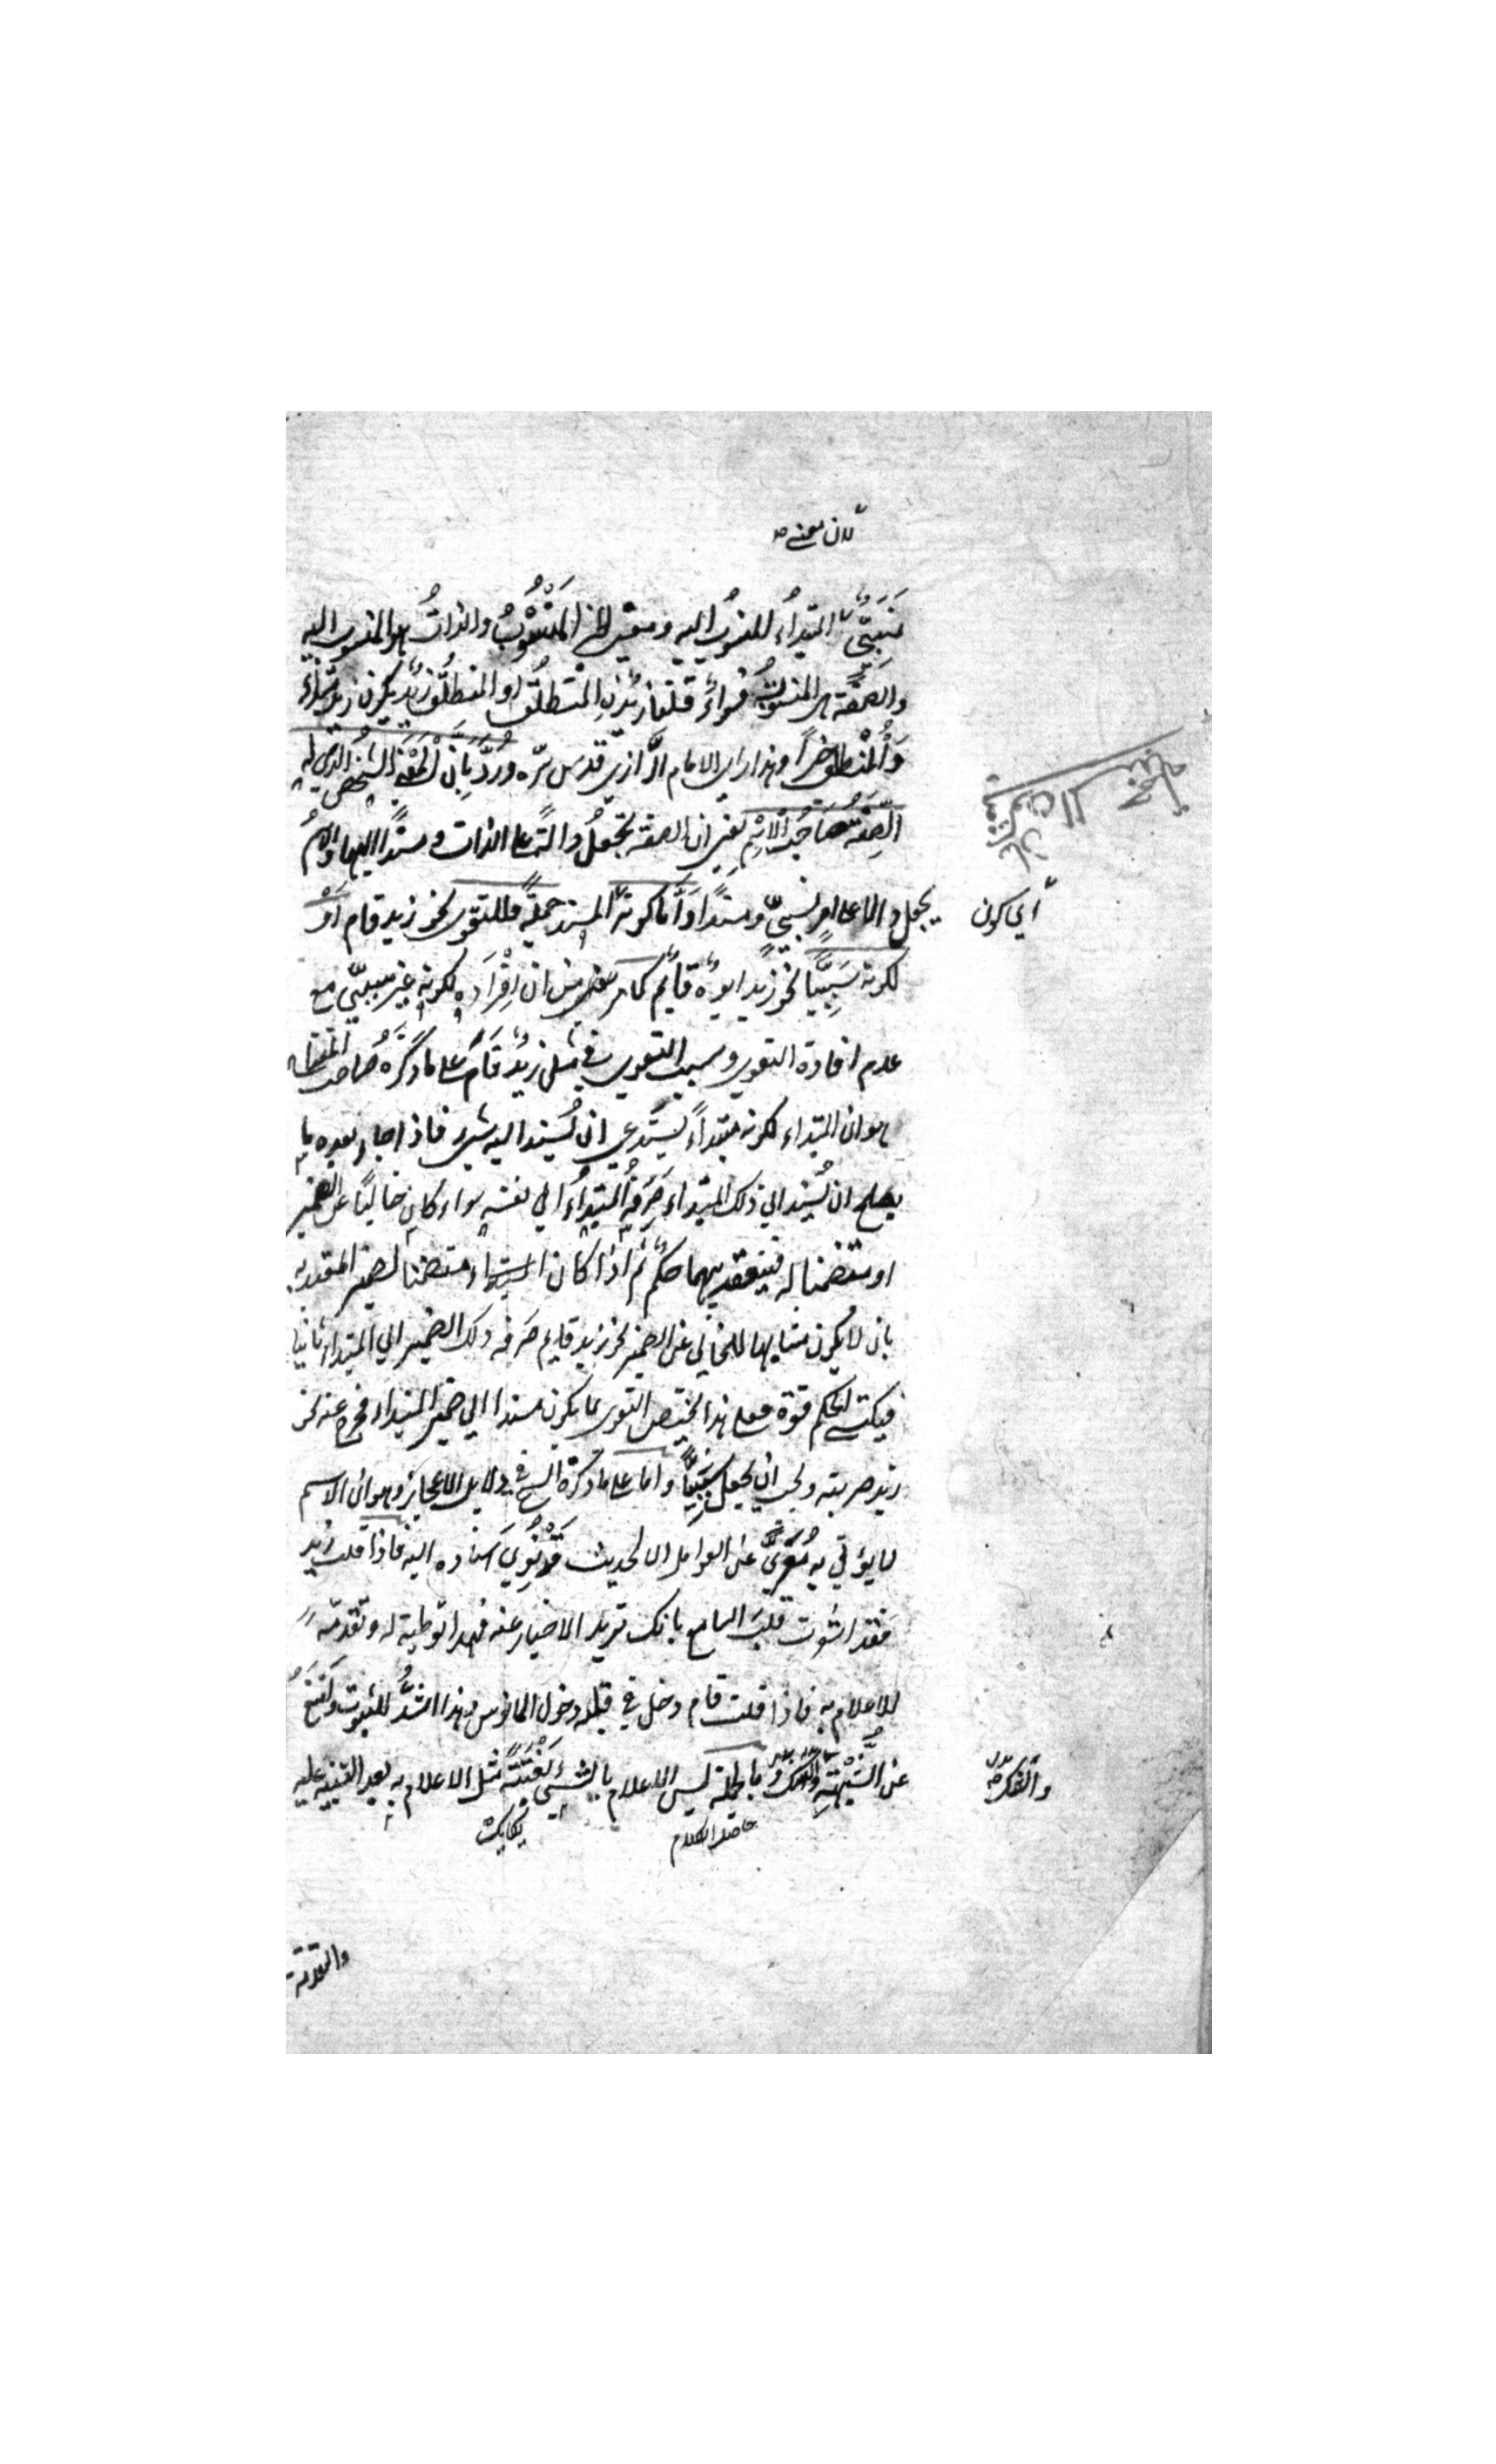 لان معنى
نسبيّ المبتداء المنسوب اليه ومعنى الخبر المنسوب والذات هو المنسوب اليه
والصفة هى المنسوب فسواء قلنا زيد المنطلق او المنطلق زيد يكون زيد مبتداء
والمنطلق خبرا وهذا راى الامام الرازي قدس سره وردّ بان المعنى الشخص الذي له
الصفة صاحب الاسم يعنى ان الصفة تجعل دالة على الذات ومسندا اليها والاسم
اي كون
يجعل دالا على امر نسبيّ ومسندا وأما كونه المسند جملة فللتقوى نحو زيد قام او
لكونه سببيّا نحو زيد ابوه قائم كما مر من ان افراده لكونه غير سببيّ مع
عدم افادة التقوى وسبب التقوى في مثل زيد قام على ما ذكره صاحب المفتاح
هو ان المبتداء لكونه مبتداءً يستدعى ان يُسند اليه شىء فاذا جاء بعده ما
يصلح ان يُسند الى ذلك المبتداء صرفه المبتداء الي نفسه سواء كان خاليًا عن الضمير
او متضمنا له فينعقد بينهما حكم ثم اذا كان المبتداء متضمنا لضميره المعتد به
بان لا يكون مشابها للخالي عن الضمير نحو زيد قايم صرفه ذلك الضمير الي المبتداء ثانيا
فيكتسي الحكم قوة فعلى هذا يختص التقوى بما يكون مسندا الي ضمير المبتداء فخرج عنه نحو
زيد ضربته ويجب ان يجعل سببيًّا واما على ما ذكره الشيخ في دلايل الاعجاز وهو ان الاسم
لا يؤتي به معرىً عن العوامل الا لحديث قد نوي اسناده اليه فاذا قلت زيد
فقد اشعرت قلب السامع بانك تريد الاخبار عنه فهذا توطية له وتقدمة
للاعلام به فاذا قلت قام دخل في قلبه دخول المانوس وهذا اشدّ للثبوت وامنع
عن الشبهة والشك وبالجملة ليس الاعلام بالشيء بغتة مثل الاعلام به بعد التنبيه عليه
والشك صح
حاصل الكلام
والتقدمة